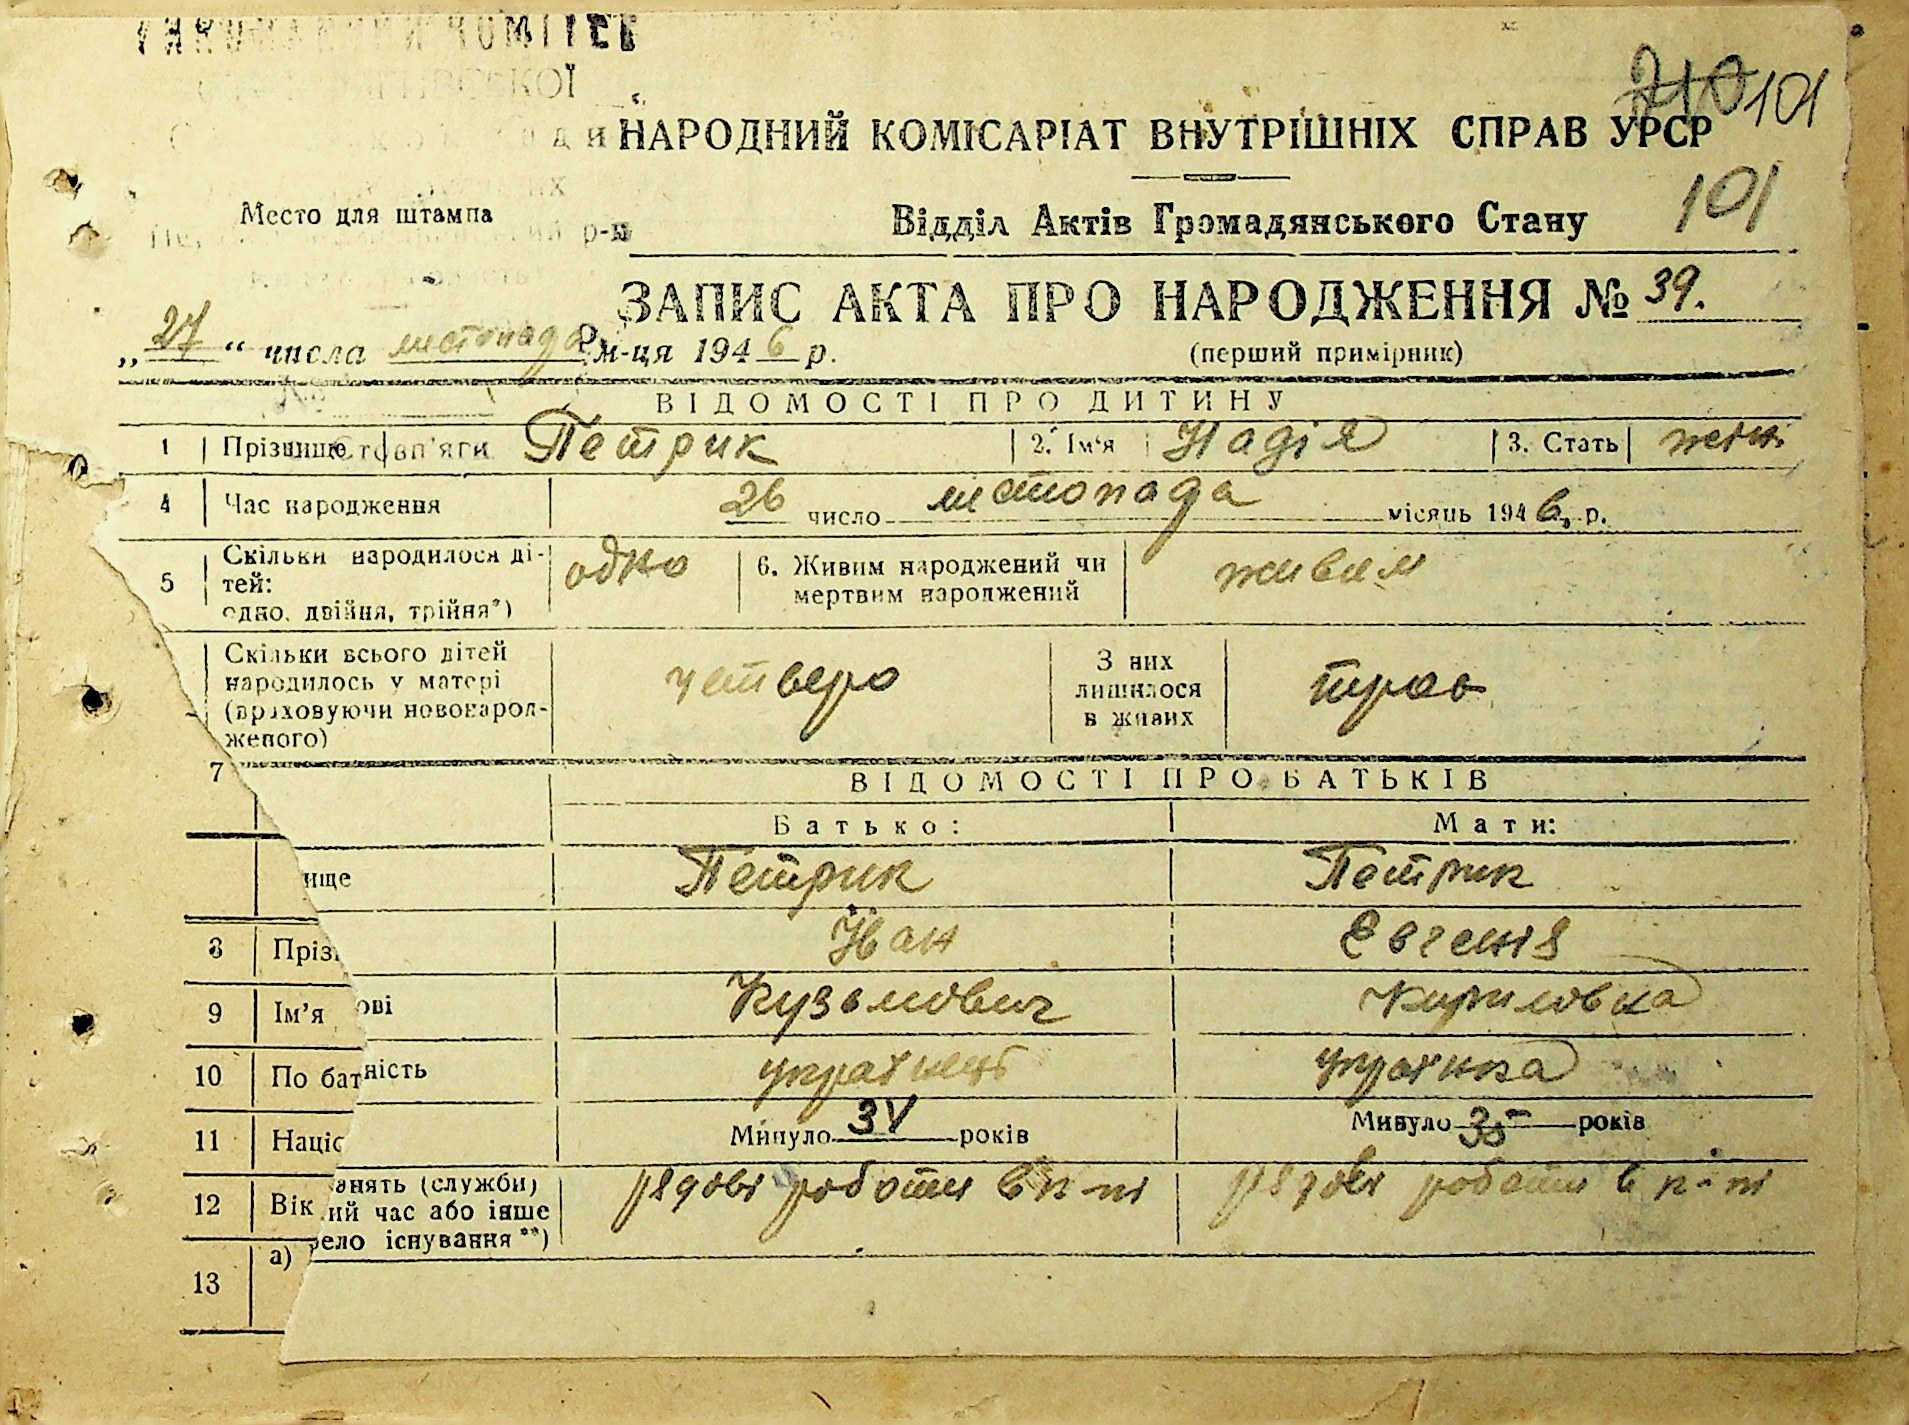 КОМІТЕТ
710 101
НАРОДНИЙ КОМІСАРІАТ ВНУТРІШНІХ СПРАВ УРСР
101
Место для штампа
р-н
Відділ Актів Громадянського Стану
ЗАПИС АКТА ПРО НАРОДЖЕННЯ № 39.
„27“ числа листопада м-ця 1946 р.
(перший примірник)
ВІДОМОСТІ ПРО ДИТИНУ
1 Прізвище Петрик 2. Ім'я Надія 3. Стать жін.
Стовп'яги
4 Час народження 26 число листопада місяць 1946 р.
5 Скільки народилося дітей: одно, двійня, трійня*) одно 6. Живим народжений чи мертвим народжений живим
Скільки всього дітей народилось у матері (враховуючи новонародженого) четверо З них лишилося в живих троє
7
ВІДОМОСТІ ПРО БАТЬКІВ
Батько: Мати:
ище Петрик Петрик
8 Пріз Іван Євгенія
9 Ім'я ові Кузьмович Кириловна
10 По бат ність українець українка
11 Націс Минуло 34 років Минуло 35 років
12 Вік анять (службии) ий час або інше рело існування**) рядові роботи в к-пі рядові роботи в к-пі
13 а)